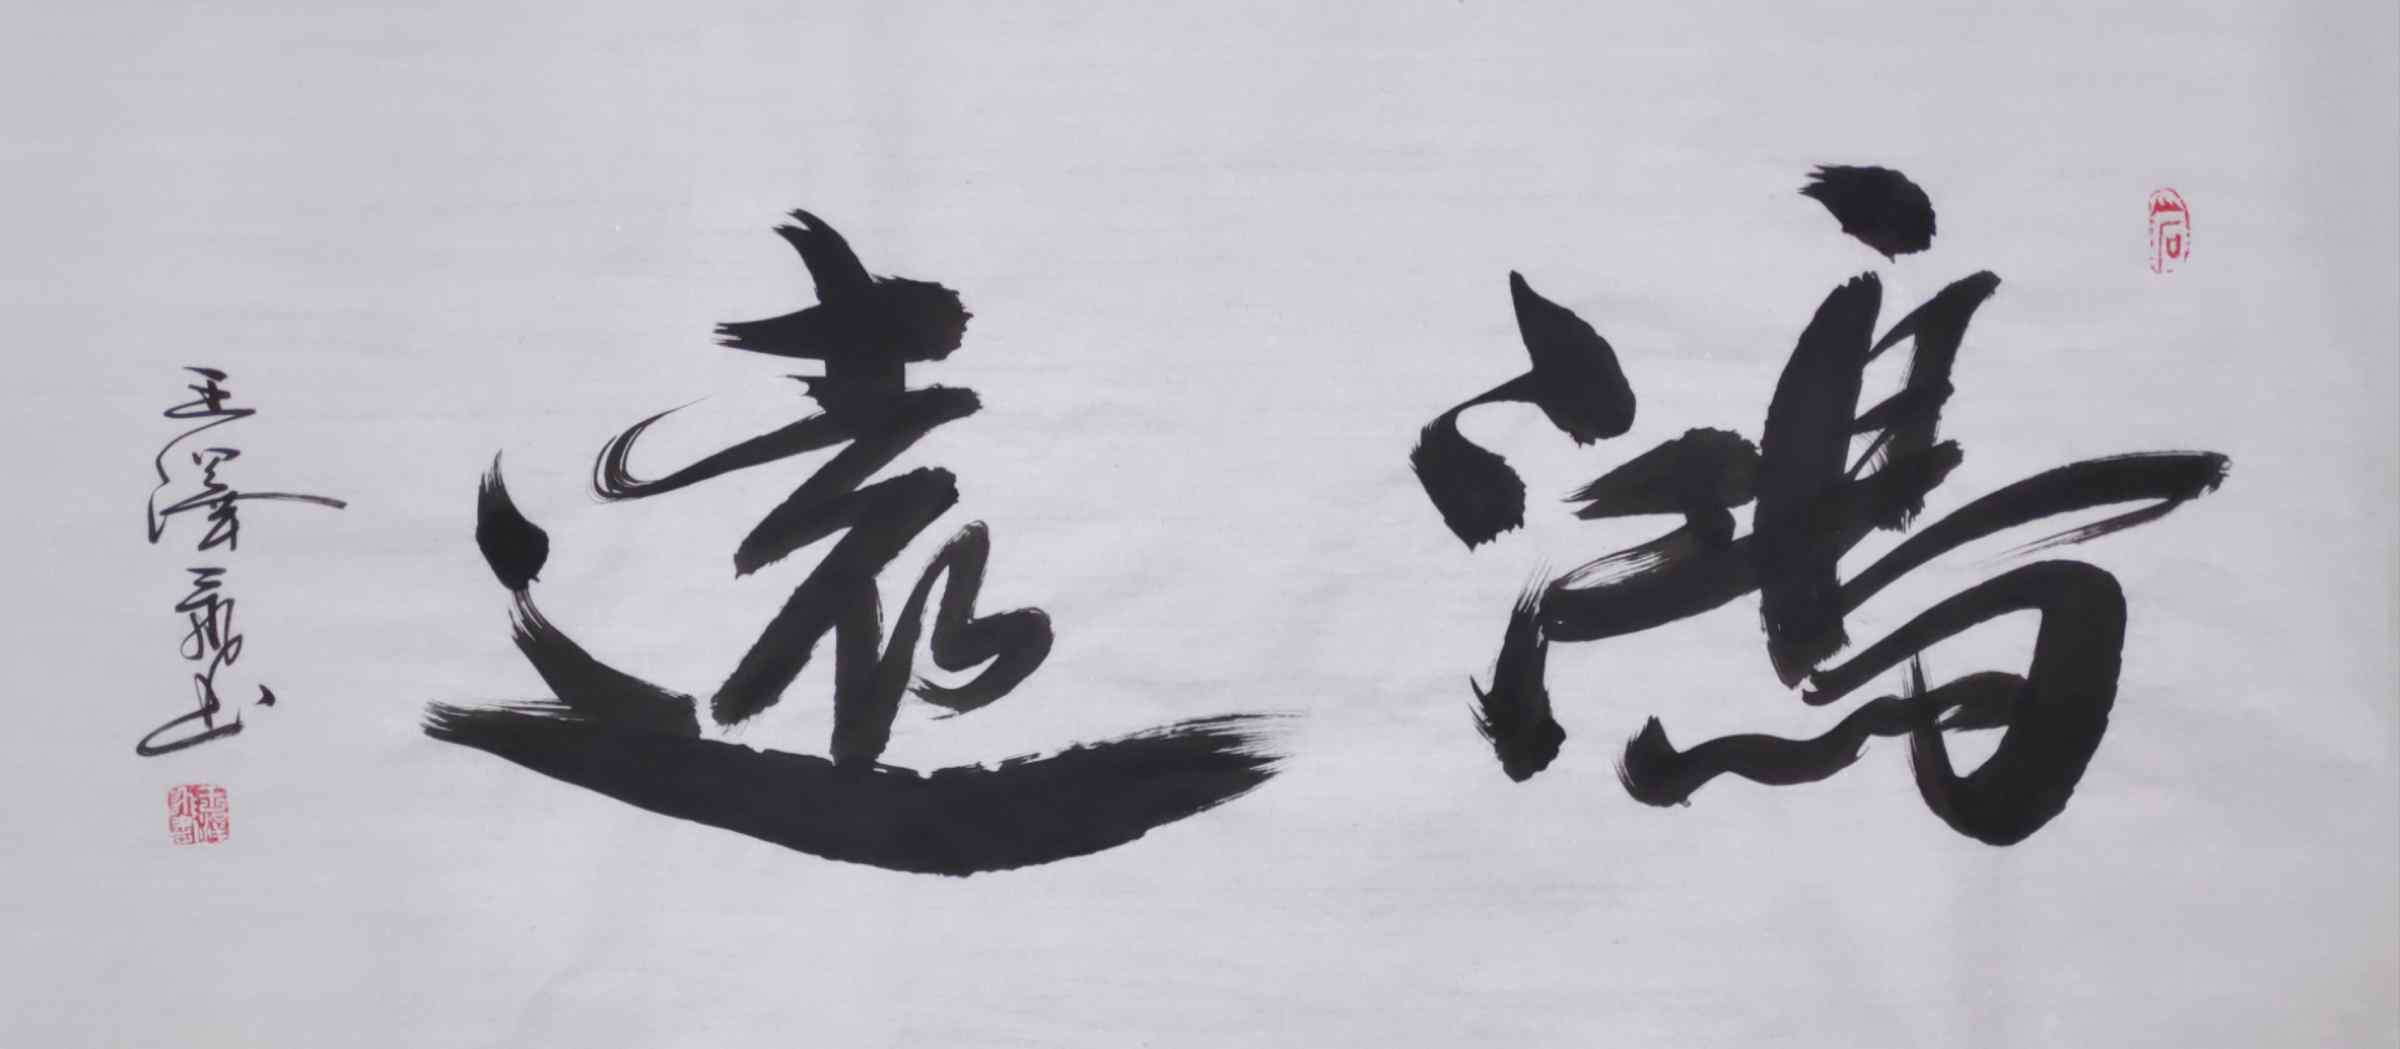 鴻遠
王澤飛書